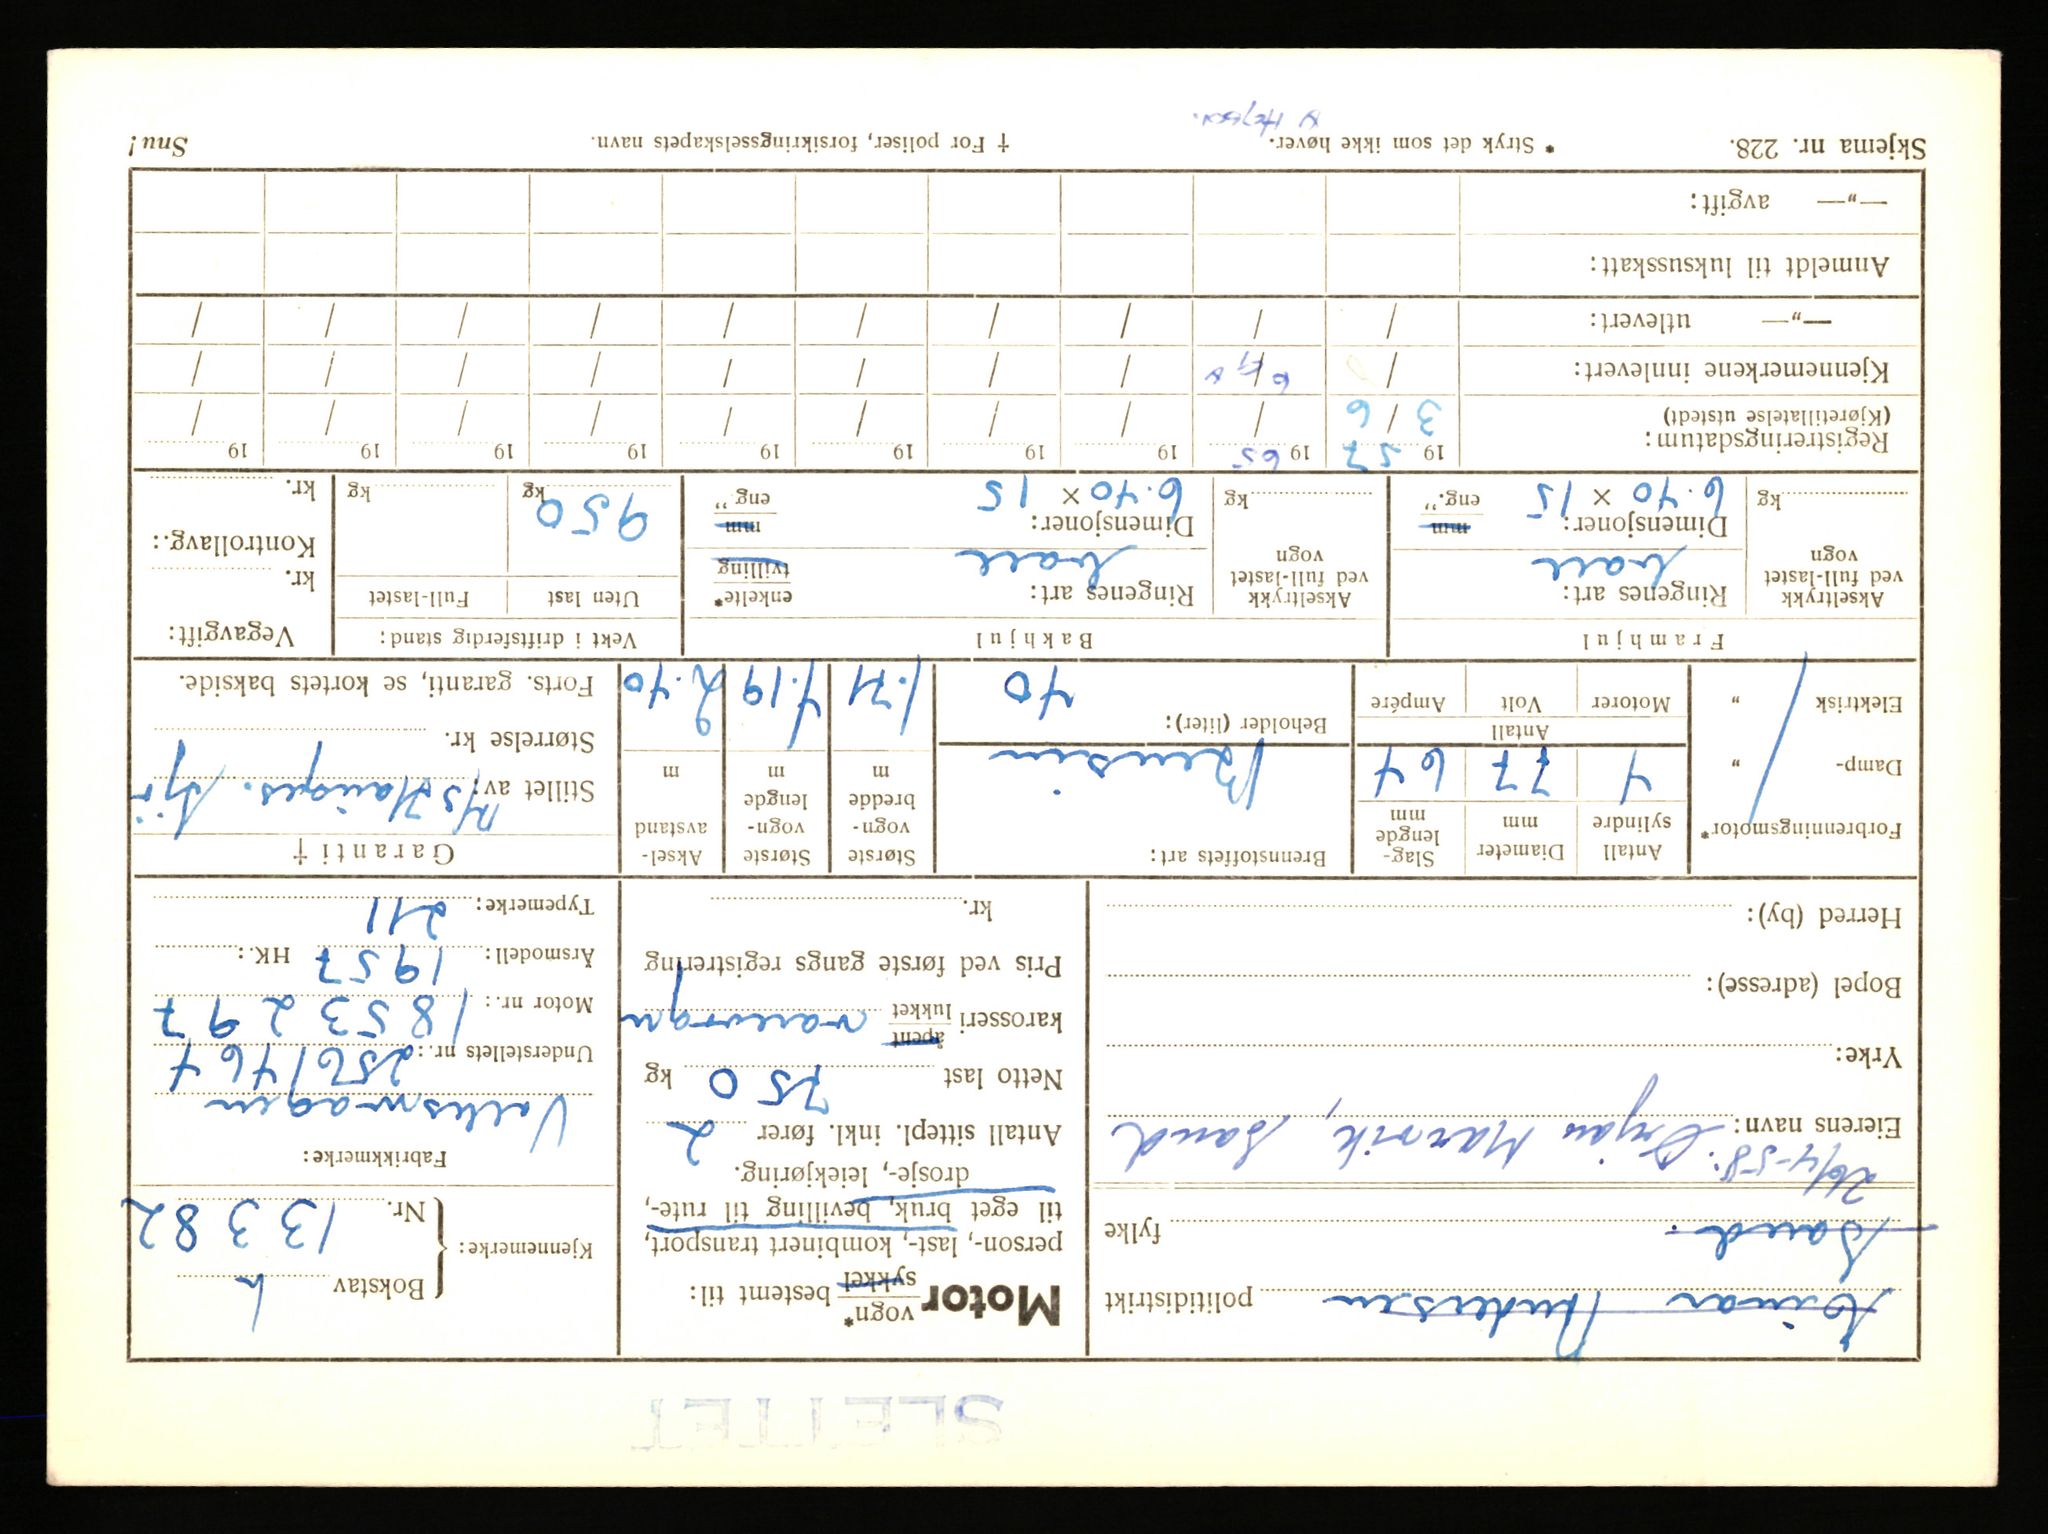 SLETTET
Einar Andersen politidistrikt
Sand. fylke
26/4-58: Ørjan Marvik, Sand
Eierens navn:
Yrke:
Bopel (adresse):
Herred (by):
Motor vogn* sykkel bestemt til:
person-, last-, kombinert transport,
til eget bruk, bevilling til rute-,
drosje-, leiekjøring.
Antall sittepl. inkl. fører 2
Netto last 750 kg
åpent
karosseri lukket varevogn
Pris ved første gangs registrering
kr.
Kjennemerke: { Bokstav
Nr. 13382
Fabrikkmerke:
Volkswagen
Understellets nr.: 2561464
Motor nr.: 1853297
Årsmodell: 1957 HK.:
Typemerke: 211
Forbrenningsmotor*
Damp- „
Elektrisk „
Antall sylindre 4
Diameter mm 77
Slaglengde mm 64
Antall
Motorer Volt Ampére
Brennstoffets art:
Bensin
Beholder (liter): 40
Største vognbredde m 1.71
Største vognlengde m 4.19
Akselavstand m 2.40
Garanti †
Stillet av:
Størrelse kr.
Forts. garanti, se kortets bakside.
Framhjul
Akseltrykk ved full-lastet vogn
kg
Ringenes art:
Dimensjoner: mm
6.40 × 15 eng. ”
Bakhjul
Akseltrykk ved full-lastet vogn
kg
Ringenes art: enkelte* tvilling
Dimensjoner: mm
6.40 × 15 eng. ”
Vekt i driftsferdig stand:
Uten last Full-lastet
950 kg kg
Vegavgift:
kr.
Kontrollavg.:
kr.
Registreringsdatum: 1957 1965 19 19 19 19 19 19 19 19
(Kjøretillatelse utstedt) 3/6 / / / / / / / / /
Kjennemerkene innlevert: / / / / / / / / / /
—„— utlevert: / / / / / / / / / /
Anmeldt til luksusskatt:
—„— avgift:
Skjema nr. 228. * Stryk det som ikke høver. † For poliser, forsikringsselskapets navn. Snu!